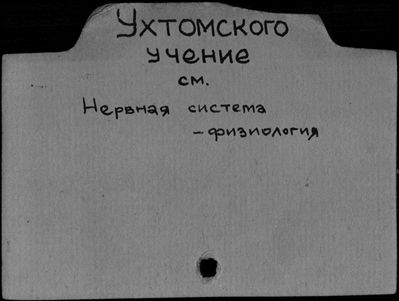 Ухтомского
учение
см.
Нервная система
– физиология